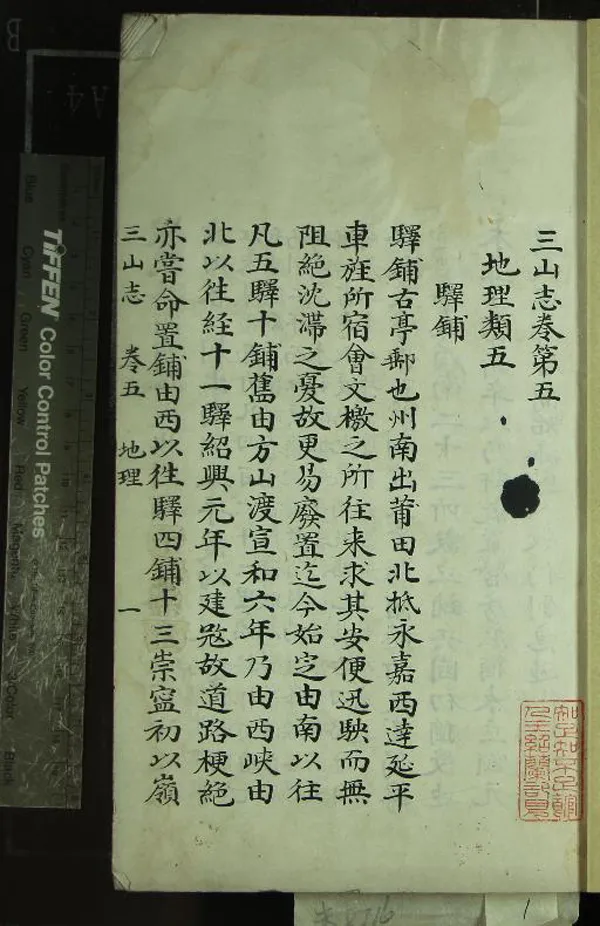 三山志卷第五
地理類五
驛鋪
驛鋪古亭郵也州南出莆田北抵永嘉西達延平
車旌所宿會文檄之所往来求其安便迅駛而無
阻絶沈滯之憂故更易廢置迄今始定由南以往
凡五驛十鋪舊由方山渡宣和六年乃由西峽由
北以往経十一驛紹興元年以建冦故道路梗絶
亦嘗命置鋪由西以往驛四鋪十三崇寍初以嶺
三山志 卷五 地理 一
TIFFEN Color Control Patches
Blue
Cyan
Green
Yellow
Red
Magenta
White
3/Color
Black
B
A4
1